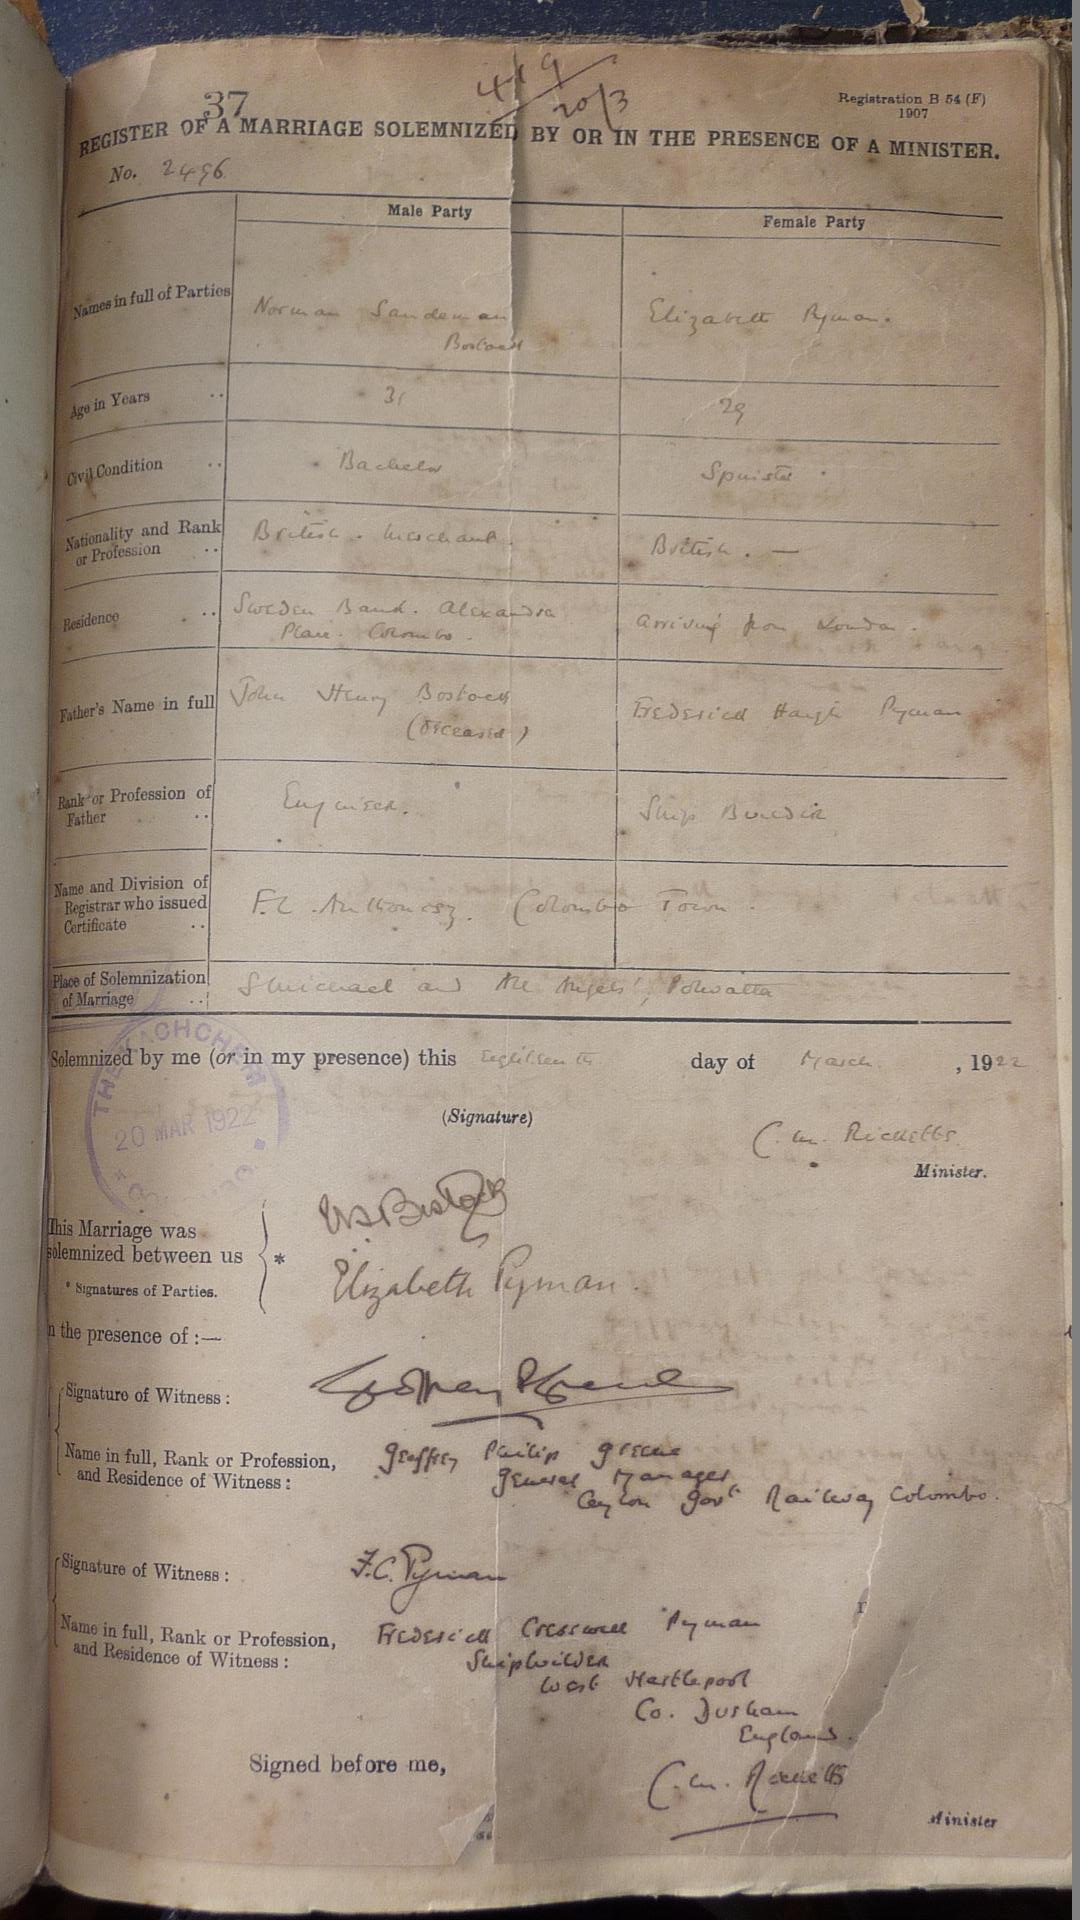 419
20/3
37
Registration B 54 (F)
1907
REGISTER OF A MARRIAGE SOLEMNIZED BY OR IN THE PRESENCE OF A MINISTER.
No. 2496
Male Party
Female Party
Names in full of Parties
Norman Sandeman
Bostock
Elizabeth Pyman.
Age in Years ..
31
29
Civil Condition ..
Bachelor
Spinster
Nationality and Rank
or Profession ..
British. Merchant.
British. —
Residence ..
Sweden Band. Alexandra
Place. Colombo.
Arriving from London.
Father's Name in full
John Henry Bostock
(deceased)
Frederick Haigh Pyman
Rank or Profession of
Father ..
Engineer.
Ship Builder
Name and Division of
Registrar who issued
Certificate ..
F.C. Anthonisz. Colombo Town.
Place of Solemnization
of Marriage ..
S Michael and All Angels', Polwatta
Solemnized by me (or in my presence) this Eighteenth day of March, 1922
THE KACHCHERI
20 MAR 1922
(Signature)
C. M. Ricketts.
Minister.
This Marriage was
solemnized between us
* Signatures of Parties.
*
NSBostock
Elizabeth Pyman.
n the presence of :—
Signature of Witness :
Geoffrey P Greene
Name in full, Rank or Profession,
and Residence of Witness :
Geoffrey Philip Greene
General Manager
Ceylon Govt Railway Colombo.
Signature of Witness :
F.C. Pyman
Name in full, Rank or Profession,
and Residence of Witness :
Frederick Cresswell Pyman
Shipbuilder
West Hartlepool
Co. Durham
England.
Signed before me,
C. M. Ricketts
Minister